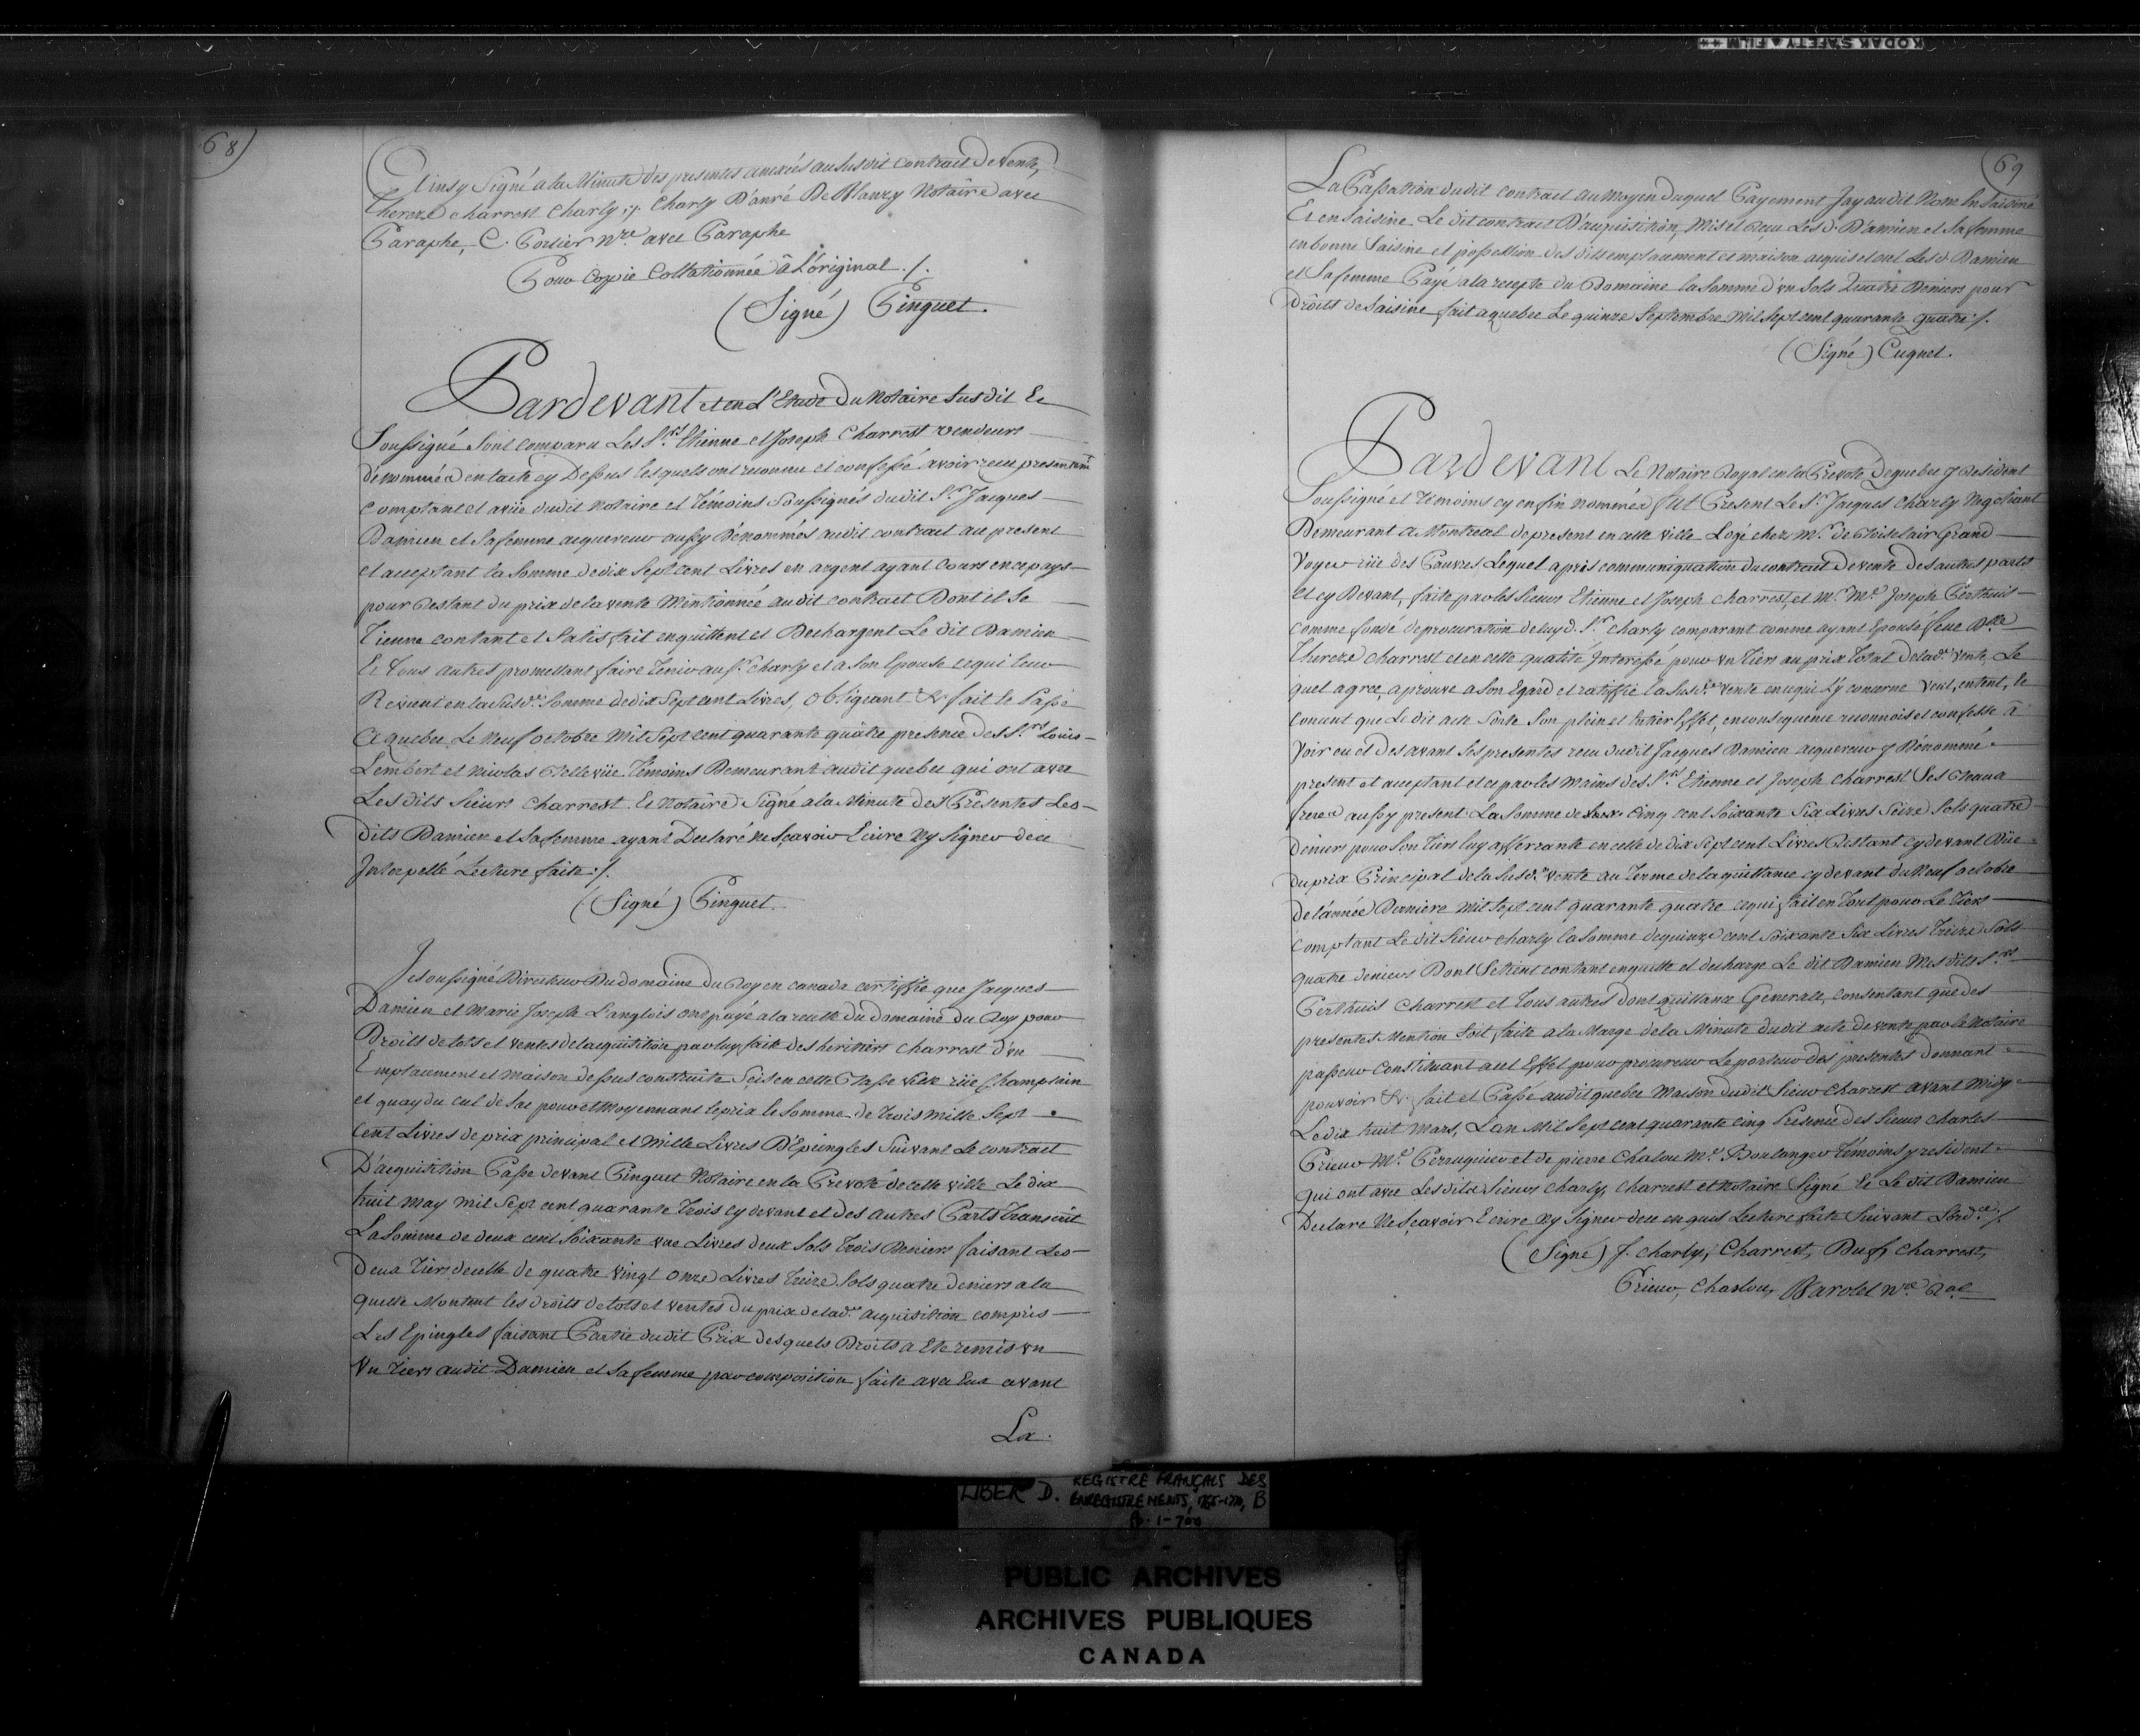 KODAK SAFETY A FILM ++
68)
Ainsy Signé a la Minute des presentes anexées au susdit contract de vente,
Thereze charrest charly ;/. Charly D'anré De Blanzy Notaire avec
Paraphe, C. Porlier n.re avec Paraphe
Pour Copie Collationnée â L'original ./.
(Signé) Pinguet.
Pardevant et en L'Etude Du Notaire Susdit Et
Soussigné Sont comparu Les S.rs Etienne et Joseph Charrest vendeurs
dénommés en l'acte cy Dessus lesquels ont reconnu et confessé avoir recu presentem.t
Comptant et a vüe dudit Notaire et Témoins Soussignés dudit S.r Jacques
Damien et Sa femme acquereur aussy Dénommés audit contract au present
et acceptant la Somme de dix Sept cent Livres en argent ayant Cours en ce pays
pour Restant du prix de la vente Mentionnée au dit contract Dont il Se
Tienne contant et Satisfait en quittent et Dechargent Le dit Damien
Et Tous autres promettant faire Tenir au S.r Charly et a Son Epouse ce qui leur
Revient en la Susd.e Somme de dix Sept cent Livres, obligeant &.a fait le Passé
A quebec Le Neuf octobre Mil Sept cent quarante quatre presence des S.rs Louis
Lembert et Nicolas Bellevüe Témoins Demeurant audit quebec qui ont avec
Les dits Sieurs Charrest Et Notaire Signé a la Minute des Presentes Les
dits Damien et Sa femme ayant Declaré ne Scavoir Ecrire Ny Signer de ce
Interpellé Lecture faite ./.
(Signé) Pinguet.
Je Soussigné Directeur Du domaine du Roy en canada certiffie que Jacques
Damien et Marie Joseph L'anglois ont payé a la recette du domaine du Roy pour
Droits de lots et ventes de lacquisition par luy faite des heritiers Charrest d'un
Emplacement et Maison dessus construite Scis en cette Basse Ville rüe Champlain
et quay du cul de Sac pour et Moyennant le prix le Somme de Trois Mille Sept
Cent Livres de prix principal et Mille Livres D'Epingles Suivant Le contract
D'acquisition Passé devant Pinguet Notaire en la Prevoté de cette ville Le dix
huit May Mil Sept cent quarante Trois cy devant et des autres Parts Transcrit
La Somme de deux cent Soixante une Livres deux Sols Trois Deniers faisant Les
Deux Tiers de celle de quatre vingt onze Livres Treize Sols quatre deniers a la
quelle Montent les droits de lots et ventes du prix de lad.e acquisition compris
Les Epingles faisant Partie dudit Prix desquels Droits a Eté remis un
Un Tiers audit Damien et Sa femme par composition faite avec Eux avant
La.
69
La Passation dudit contract au Moyen duquel Payement Jay audit Nom Insaisiné
Et ensaisine Le dit contract D'acquisition, Mis et Recu Les d. Damien et Sa femme
en bonne Saisine et possession des dits emplacement et maison acquis et ont Les d. Damien
et Sa femme Payé a la recepte du Domaine la Somme d'un Sols Quatre Deniers pour
Droits de Saisine fait a quebec Le quinze Septembre Mil Sept cent quarante quatre ./.
(Signé) Cugnet.
Pardevant Le Notaire Royal en la Prevoté De quebec y Resident
Soussigné et Témoins cy en fin nommés fut Present Le S.r Jacques Charly Negotiant
Demeurant a Montreal de present en cette ville Logé chez M.r de Boisclair Grand
Voyer rüe des Pauvres Lequel aprés communiquation du contract de vente des autres parts
et cy Devant, faite par les Sieurs Etienne et Joseph charrest, et M.r M.e Joseph Perthuis
comme fondé de procuration de luy d. S.r Charly comparant comme ayant Epousé feue D.lle
Thereze Charrest et en cette qualité Interessé pour un Tiers au prix Total de lad.e vente, Le
quel agree, aprouve a Son Egard et ratiffie la Susd.e vente en ce qui L'y concerne veut, entent, &
consent que Le dit acte Sorte Son plein et Entier Effet, en consequence reconnoist et confesse a
voir eu et des avant Ses presentes recu dudit Jacques Damien acquereur y Dénommé
present et acceptant et ce par les Mains des S.rs Etienne et Joseph charrest Ses Beaux
freres aussy present La Somme de Cinq cent Soixante Six Livres Seize Sols quatre
Deniers pour Son Tiers luy afferrante en celle de dix Sept cent Livres Restant cy devant Düe
Du prix Principal de la Susd.e vente au Terme de la quittance cy devant du Neuf octobre
De l'année Derniere Mil Sept cent quarante quatre ce qui fait en Tout pour Le Tiers
Comptant Le dit Sieur Charly la Somme de quinze cent Soixante Six Livres Treize Sols
quatre deniers Dont Se tient contant en quitte et decharge Le dit Damien Mes dits S.rs
Perthuis Charrest et Tous autres dont quittance Generalle, consentant que des
presentes Mention Soit faite a la Marge de la Minute dudit acte de vente par le Notaire
passeur Constituant a cet Effet pour procureur Le porteur des presentes donnant
pouvoir &.a fait et Passé audit quebec Maison dudit Sieur Charest avant Midy
Le dix huit Mars, L'an Mil Sept cent quarante cinq Presence des Sieurs Charles
Prieur M.e Perruquier et de pierre Chalou M.e Boulanger Témoins y resident
qui ont avec Les dits Sieurs Charly, Charrest et Notaire Signé Et Le dit Damien
Declare Ne Scavoir Ecrire Ny Signer de ce enquis Lecture faite Suivant L'ord.ce ./.
(Signé) J. Charly, Charrest, Duf, charrest,
Prieur, Charlou, Barolet N.re Ral
LIBER D. REGISTRE FRANÇAIS DES
ENREGISTREMENTS, 1765-1770, B
pp. 1-700
PUBLIC ARCHIVES
ARCHIVES PUBLIQUES
CANADA